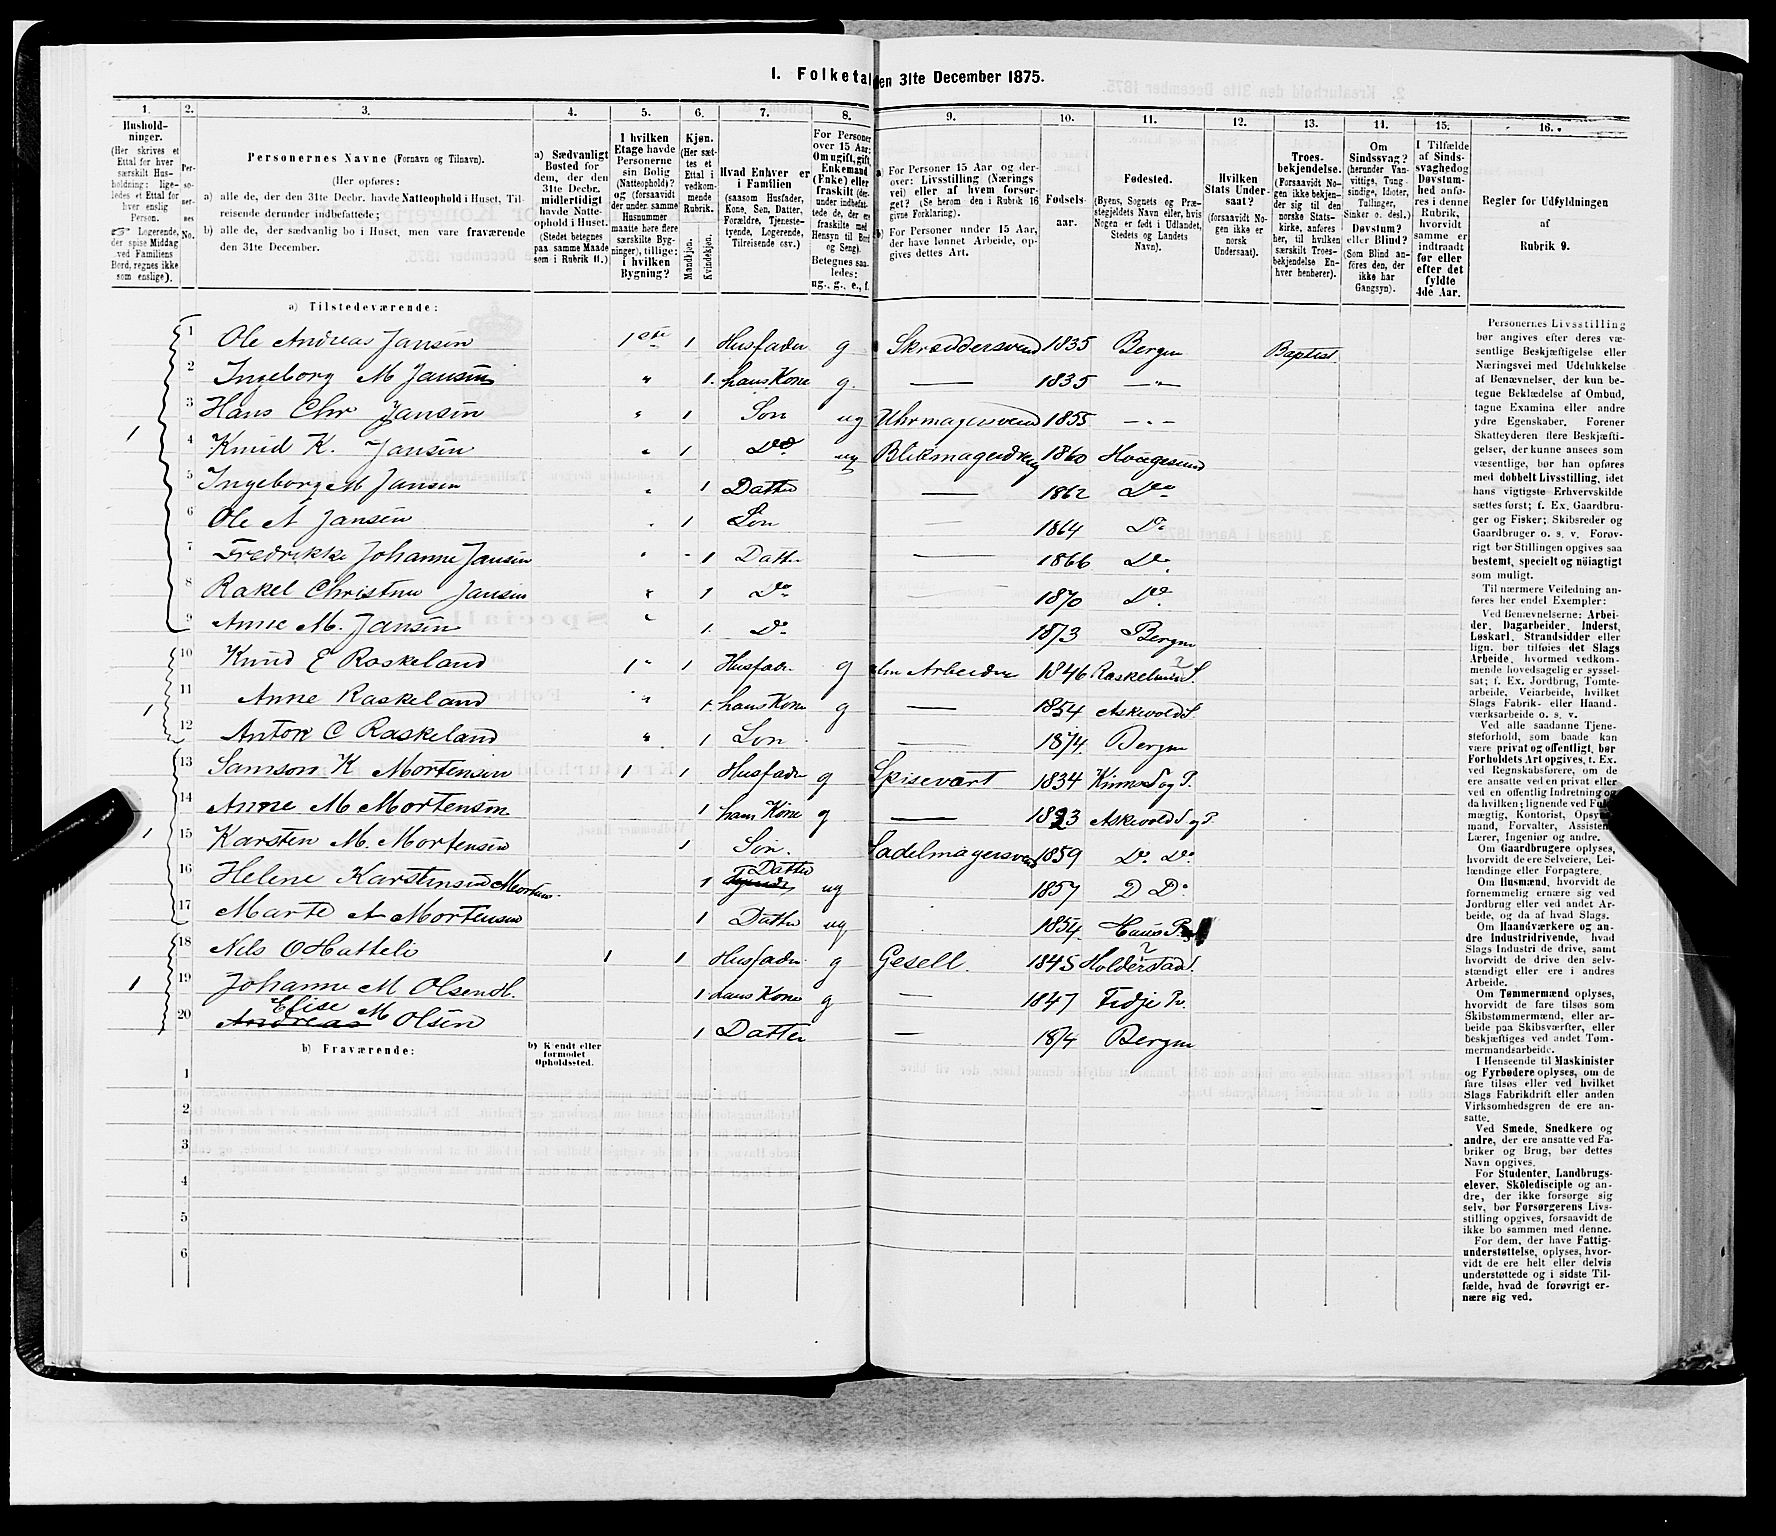 1. Folketal den 31te December 1875.
1. 2. 3. 4. 5. 6. 7. 8. 9. 10. 11. 12. 13. 14. 15. 16.
Husholdninger. (Her skrives et Ettal for hver særskilt Husholdning; ligeledes et Ettal for hver enslig Person. Logerende, der spise Middag ved Familiens Bord, regnes ikke som enslige).
Personernes No.
Personernes Navne (Fornavn og Tilnavn).
(Her opføres:
a) alle de, der den 31te Decbr. havde Natteophold i Huset, Tilreisende derunder indbefattede;
b) alle de, der sædvanlig bo i Huset, men vare fraværende den 31te December.
a) Sædvanligt Bosted for dem, der den 31te Decbr. midlertidigt havde Natteophold i Huset. (Stedet betegnes paa samme Maade som i Rubrik 11.)
I hvilken Etage havde Personerne sin Bolig (Natteophold)? og (forsaavidt der under samme Husnummer maatte høre flere særskilte Bygninger), tillige: i hvilken Bygning?
Kjøn. (Her sættes et Ettal i vedkommende Rubrik. Mandkjøn. Kvindekjøn.
Hvad Enhver er i Familien (saasom Husfader, Kone, Søn, Datter, Forældre, Tjenestetyende, Logerende, Tilreisende osv.)
For Personer over 15 Aar: Om ugift, gift, Enkemand (Enke) eller fraskilt (derunder indbefattede de, der ere fraskilte med Hensyn til Bord og Seng). Betegnes saaledes: ug., g., e., f.
a) For Personer 15 Aar og derover: Livsstilling (Næringsvei) eller af hvem forsørget? (Se herom den i Rubrik 16 givne Forklaring).
b) For Personer under 15 Aar, der have lønnet Arbeide, opgives dettes Art.
Fødselsaar.
Fødested. (Byens, Sognets og Præstegjeldets Navn eller, hvis Nogen er født i Udlandet, Stedets og Landets Navn).
Hvilken Stats Undersaat? (forsaavidt Nogen ikke er norsk Undersaat).
Troesbekjendelse. (Forsaavidt Nogen ikke bekjender sig til den norske Statskirke, anføres her, til hvilken særskilt Troesbekjendelse Enhver henhører).
Om Sindssvag? (herunder Vanvittige, Tungsindige, Idioter, Tullinger, Sinker o. desl.) Døvstum? eller Blind? (Som Blind anføres den, der ikke har Gangsyn).
I Tilfælde af Sindssvaghed og Døvstumhed anføres i denne Rubrik, hvorvidt samme er indtraadt før eller efter det fyldte 4de Aar.
Regler for Udfyldningen af Rubrik 9.
a) Tilstedeværende:
1 Ole Andreas Jansen 1ste 1 Husfader g Skræddersvend 1835 Bergen Baptist
2 Ingeborg M Jansen " 1. hans Kone g. — 1835 — " —
3 Hans Chr Jansen " 1 Søn ug Uhrmagersvend 1855 — " —
1 4 Knud K. Jansen " 1 Do ug Blikmagerdreng 1860 Hougesund
5 Ingeborg M Jansen " 1 Datter — 1862 Do
6 Ole A Jansen " 1 Søn 1864 Do
7 Fredrikke Johanne Jansen " 1 Datter — 1866 Do
8 Rakel Christine Jansen " 1 Do 1870 Do
9 Anne M. Jansen " 1. Do 1873 Bergen
10 Knud E Raskeland 1" 1 Husfader g Arbeider 1846
1 11 Anne Raskeland " 1. hans Kone g — 1854 Askevold S.
12 Anton C Raskeland " 1 Søn — 1874 Bergen
13 Samson K Mortensen 1 1 Husfader g Spisevært 1834 Kinn S og P.
14 Anne M Mortensen 1 hans Kone g — 1823 Askevold S og P.
1 15 Karsten M. Mortensen 1 Søn. Sadelmagersvend 1859 Do Do
16 Helene Karstensen Mortens. 1 Datter ug 1857 D Do
17 Marte A Mortensen 1 Datter ug 1854 Haus P
18 Nils O Hatteli 1 1 Husfader g Gesell. 1845
1 19 Johanne M Olsen H. 1 hans Kone g — 1847 Fedje P.
20 Andreas Elise M Olsen 1 Datter — 1874 Bergen
b) Fraværende:
b) Kjendt eller formodet Opholdssted.
1
2
3
4
5
6
Personernes Livsstilling
bør angives efter deres væ-
sentlige Beskjæftigelse eller
Næringsvei med Udelukkelse
af Benævnelser, der kun be-
tegne Beklædelse af Ombud,
tagne Examina eller andre
ydre Egenskaber. Forener
Skatteyderen flere Beskjæfti-
gelser, der kunne ansees som
væsentlige, bør han opføres
med dobbelt Livsstilling, idet
hans vigtigste Erhvervskilde
sættes først; f. Ex. Gaardbru-
ger og Fisker; Skibsreder og
Gaardbruger o. s. v. Forøv-
rigt bør Stillingen opgives saa
bestemt, specielt og nöiagtigt
som muligt.
Til nærmere Veiledning an-
føres her endel Exempler:
Ved Benævnelserne: Arbei-
der, Dagarbeider, Inderst,
Løskarl, Strandsidder eller
lign. bør tilføies det Slags
Arbeide, hvormed vedkom-
mende hovedsagelig er syssel-
sat; f. Ex. Jordbrug, Tomte-
arbeide, Veiarbeide, hvilket
Slags Fabrik- eller Haand-
værksarbeide o. s. v.
Ved alle saadanne Tjene-
steforhold, som baade kan
være privat og offentligt, bør
Forholdets Art opgives, t. Ex.
ved Regnskabsførere, om de
ere ansatte ved en privat eller
ved en offentlig Indretning og
da hvilken; lignende ved Fuld-
mægtig, Kontorist, Opsyns-
mand, Forvalter, Assistent,
Lærer, Ingeniør og andre.
Om Gaardbrugere oplyses,
hvorvidt de ere Selveiere, Lei-
lændinge eller Forpagtere.
Om Husmænd, hvorvidt de
fornemmelig ernære sig ved
Jordbrug eller ved andet Ar-
beide, og da af hvad Slags.
Om Haandværkere og an-
dre Industridrivende, hvad
Slags Industri de drive, samt
hvorvidt de drive den selv-
stændigt eller ere i andres
Arbeide.
Om Tømmermænd oplyses,
hvorvidt de fare tilsøs som
Skibstømmermænd, eller ar-
beide paa Skibsværfter, eller
beskjæftiges ved andet Tøm-
mermandsarbeide.
I Henseende til Maskinister
og Fyrbødere oplyses, om de
fare tilsøs eller ved hvilket
Slags Fabrikdrift eller anden
Virksomhedsgren de ere an-
satte.
Ved Smede, Snedkere og
andre, der ere ansatte ved Fa-
briker og Brug, bør dettes
Navn opgives.
For Studenter, Landbrugs-
elever, Skoledisciple og an-
dre, der ikke forsørge sig
selv, bør Forsørgerens Livs-
stilling opgives, forsaavidt de
ikke bo sammen med denne.
For dem, der have Fattig-
understøttelse, oplyses, hvor-
vidt de ere helt eller delvis
understøttede og i sidste Til-
fælde, hvad de forøvrigt er-
nære sig ved.